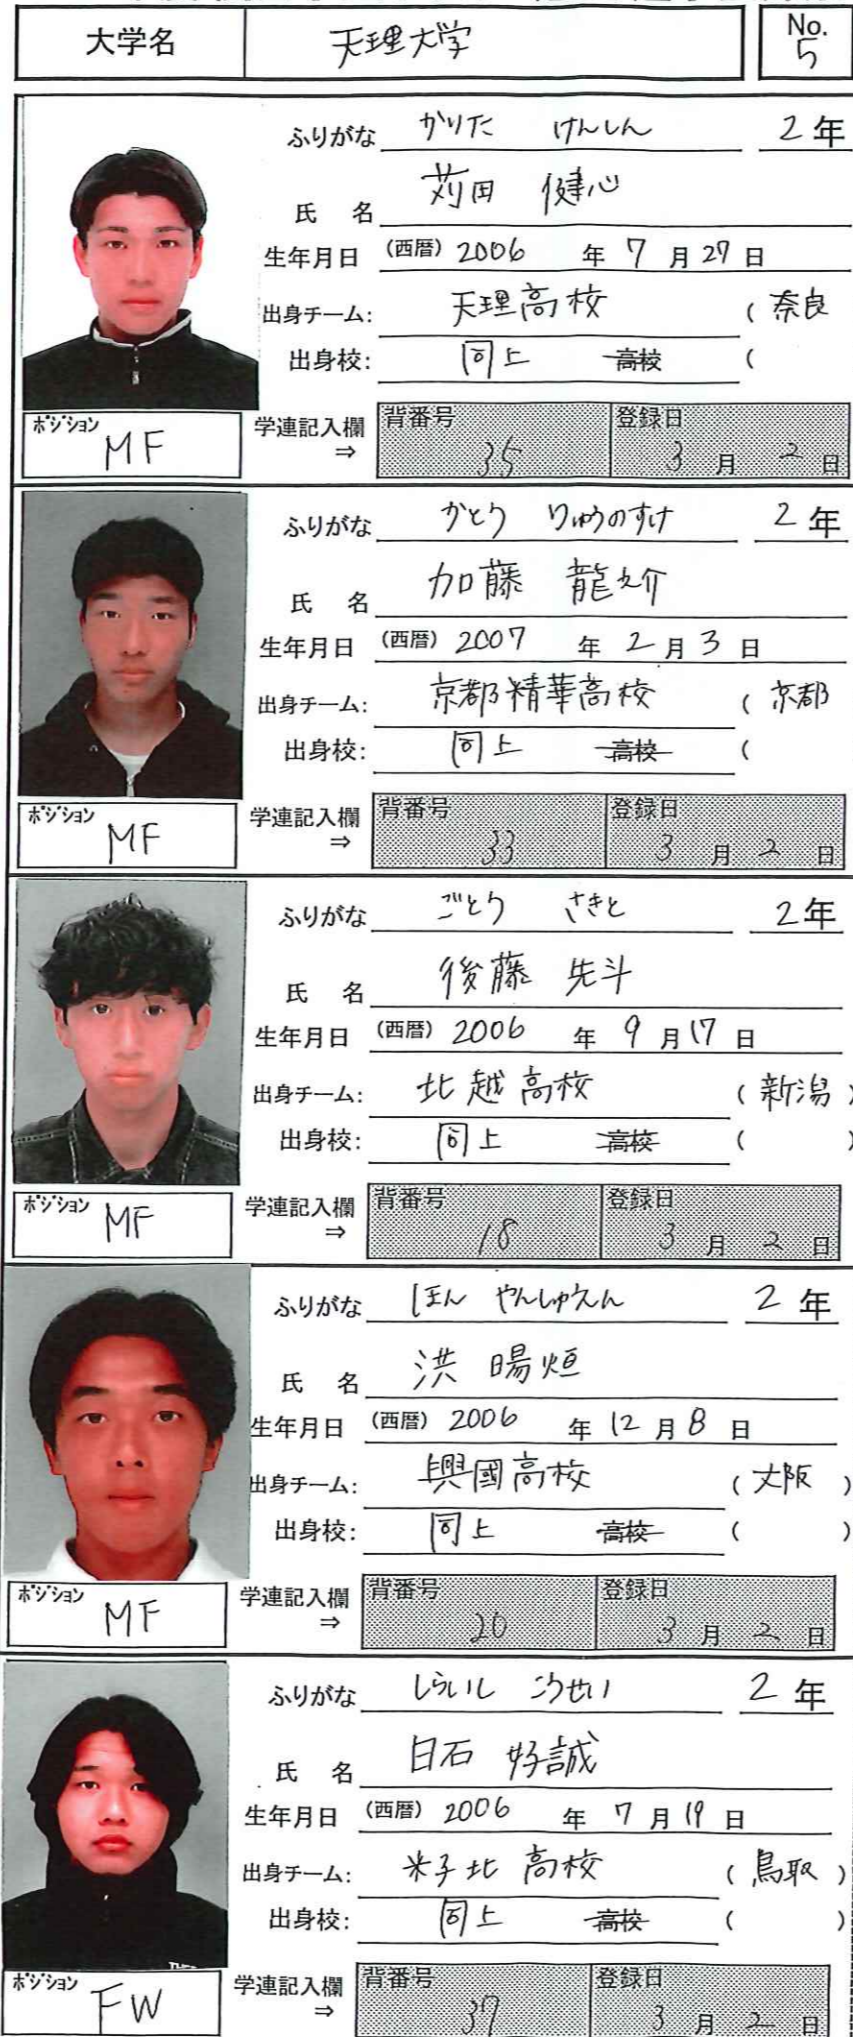 大学名 天理大学 No. 5
ふりがな かりた けんしん 2年
氏 名 苅田 健心
生年月日 (西暦) 2006 年 7 月 27 日
出身チーム: 天理高校 ( 奈良
出身校: 同上 高校 (
ポジション MF 学連記入欄 ⇒ 背番号 35 登録日 3 月 2 日
ふりがな かとう りゅうのすけ 2年
氏 名 加藤 龍之介
生年月日 (西暦) 2007 年 2 月 3 日
出身チーム: 京都精華高校 ( 京都
出身校: 同上 高校 (
ポジション MF 学連記入欄 ⇒ 背番号 33 登録日 3 月 2 日
ふりがな ごとう さきと 2年
氏 名 後藤 先斗
生年月日 (西暦) 2006 年 9 月 17 日
出身チーム: 北越高校 ( 新潟 )
出身校: 同上 高校 ( )
ポジション MF 学連記入欄 ⇒ 背番号 18 登録日 3 月 2 日
ふりがな ほん やんしゅえん 2年
氏 名 洪 暘烜
生年月日 (西暦) 2006 年 12 月 8 日
出身チーム: 興國高校 ( 大阪 )
出身校: 同上 高校 ( )
ポジション MF 学連記入欄 ⇒ 背番号 20 登録日 3 月 2 日
ふりがな しらいし こうせい 2年
氏 名 白石 好誠
生年月日 (西暦) 2006 年 7 月 19 日
出身チーム: 米子北高校 ( 鳥取 )
出身校: 同上 高校 ( )
ポジション FW 学連記入欄 ⇒ 背番号 37 登録日 3 月 2 日